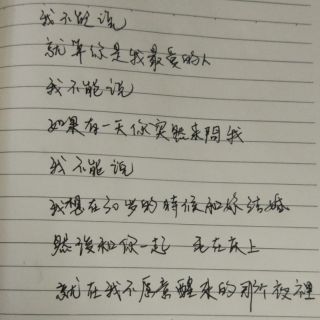 我不能说
就算你是我最爱的人
我不能说
如果有一天你突然来問我
我不能说
我想在50岁的時候和你结婚
然後和你一起 死在床上
就在我不愿意醒来的那个夜裡